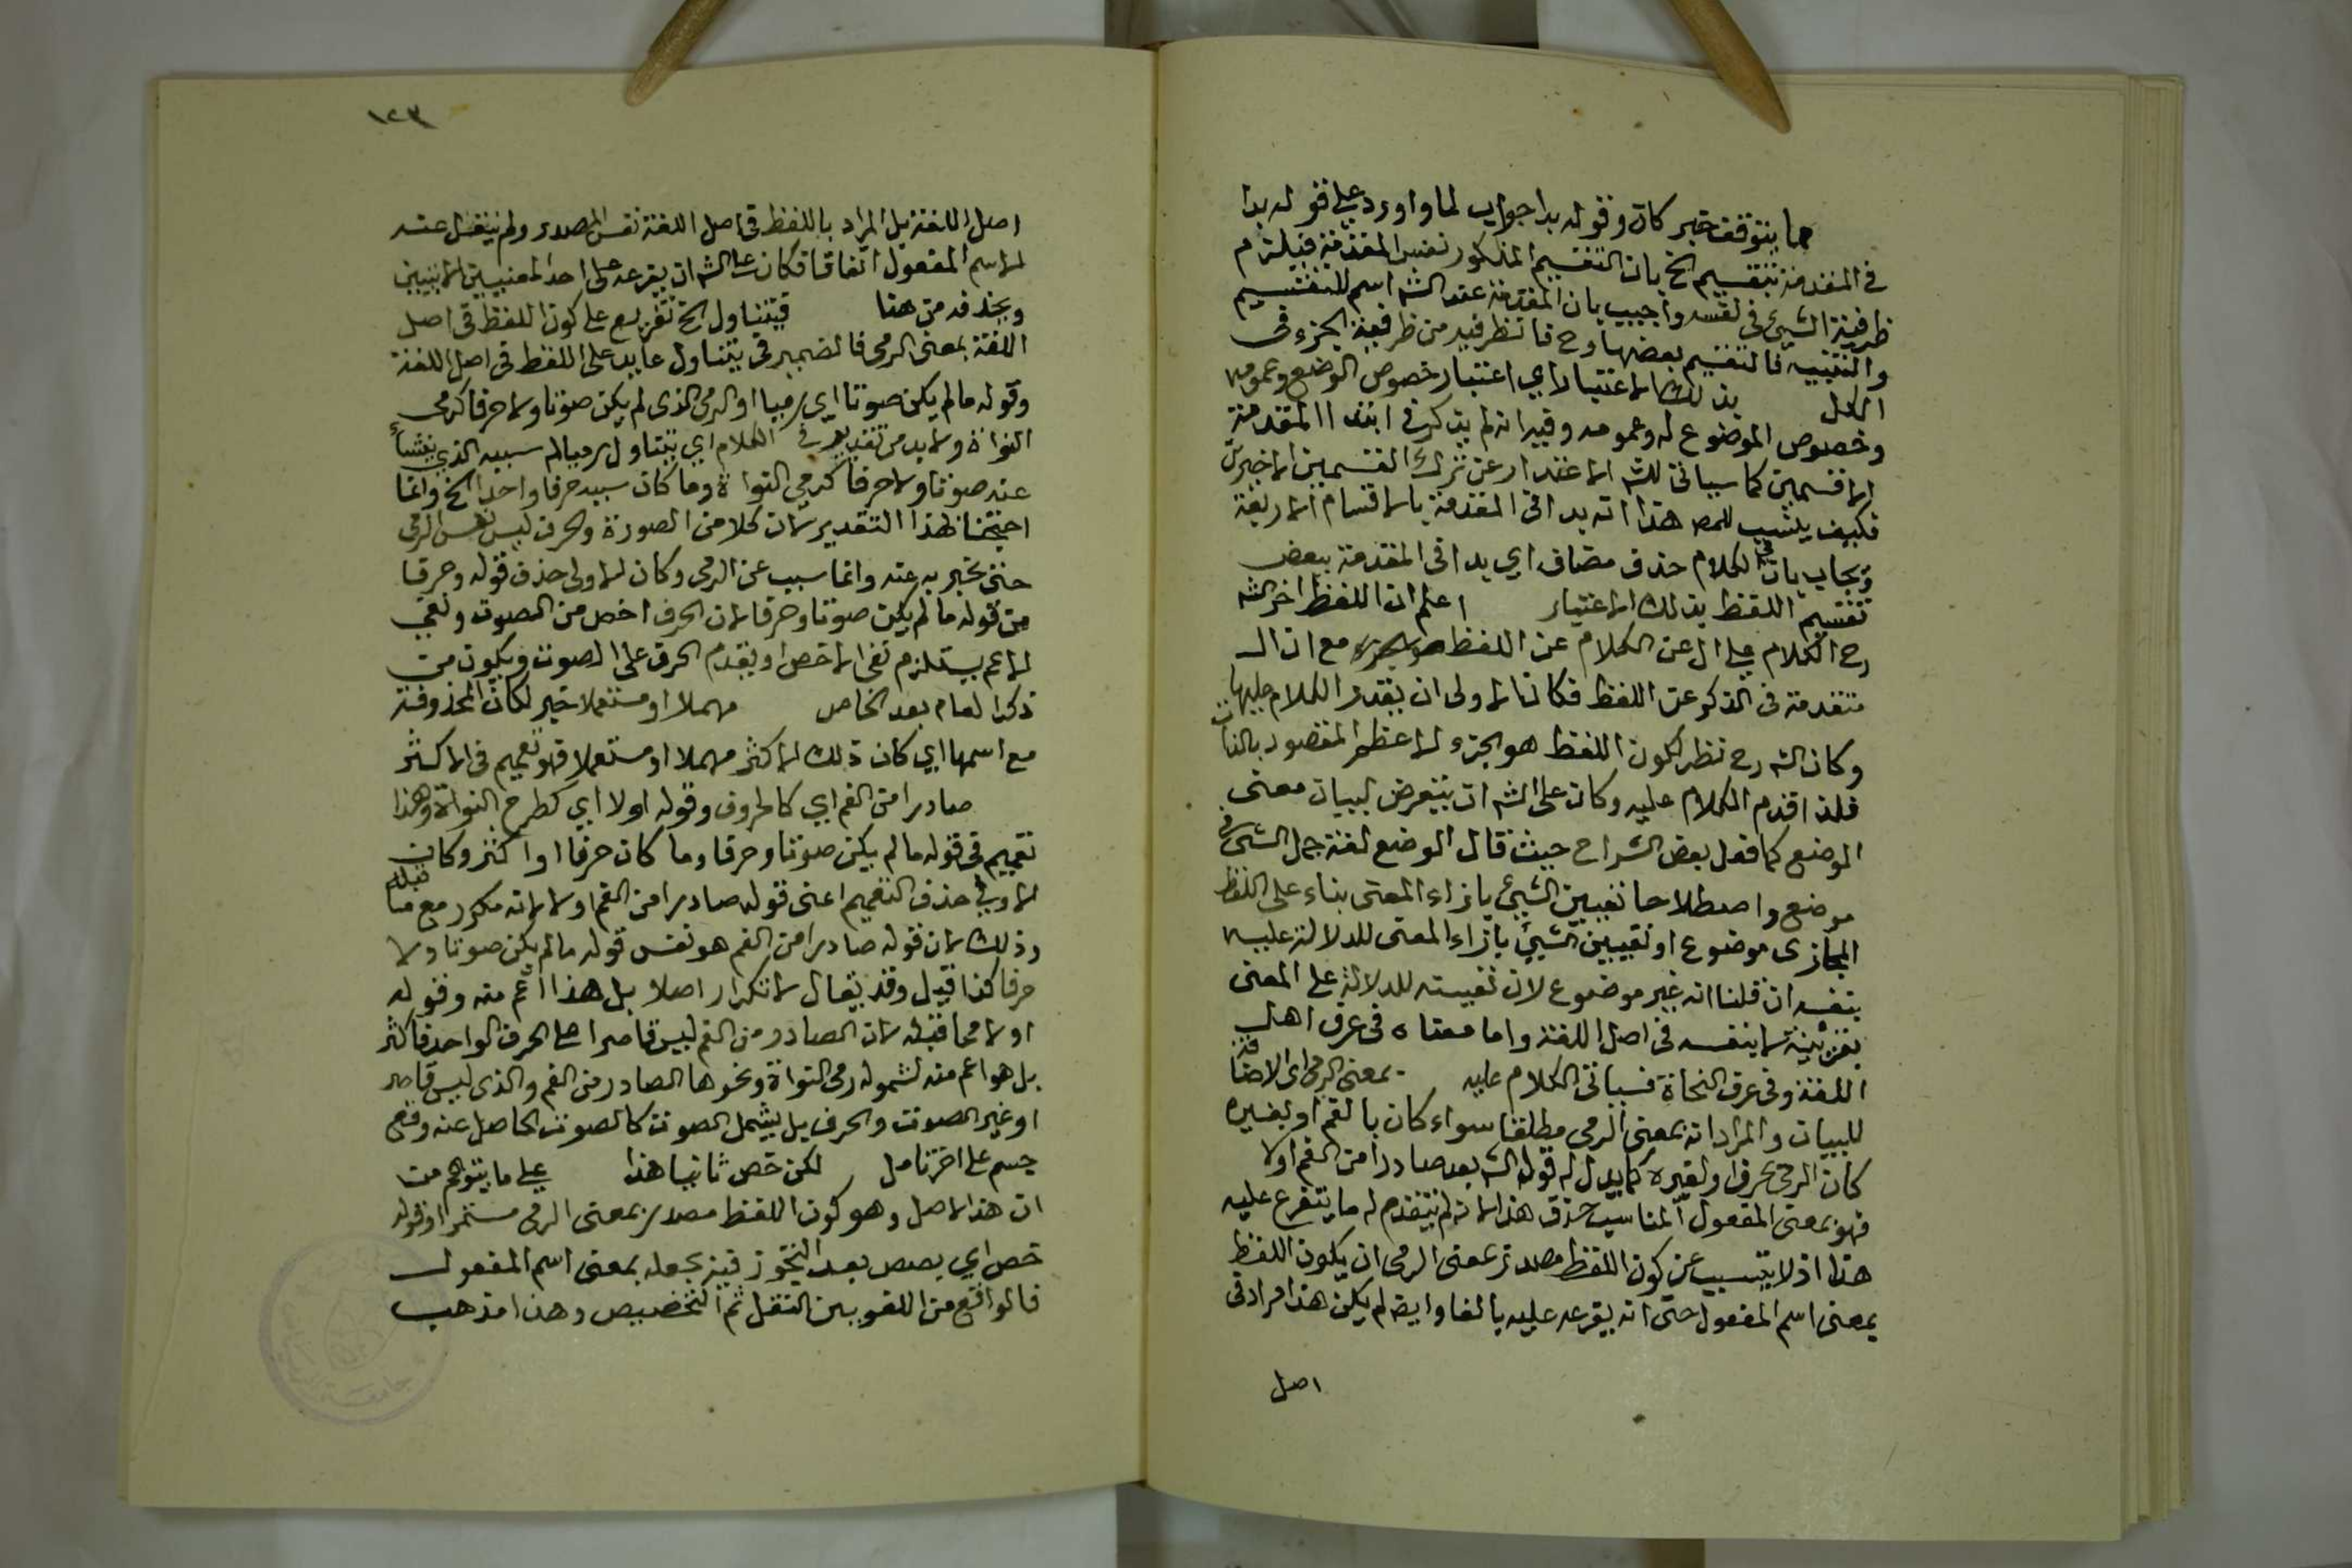 مما يتوقف خبر كان وقوله بدا جواب لما واورد على قوله بدا
في المقدمة بتقسيم الخ بان التقسيم المذكور نفس المقدمة فيلزم
ظرفية الشيئ في نفسه واجيب بان المقدمة عند الشه اسم للتقسيم
والتنبيه فالتقسيم بعضها وح فانظرفيه من ظرفية الجزء في
الكل بذلك الاعتبار اي اعتبار خصوص الوضع وعمومه
وخصوص الموضوع له وعمومه وفيه انه لم يذكر في ابتدا المقدمة
الا قسمين كما سياتي للشه الاعتذار عن ترك القسمين الاخيرين
فكيف ينسب للمص هذا انه بدا في المقدمة بالاقسام الاربعة
ويجاب بان في الكلام حذف مضاف اي بدا في المقدمة ببعض
تقسيم اللفظ بذلك الاعتبار اعلم ان اللفظ اخر الشه
رح الكلام على ال عن الكلام عن اللفظ مع ان ال
متقدمة في الذكر عن اللفظ فكان الاولى ان يقدم الكلام عليها
وكان الشه رح نظر لكون اللفظ هو الجزء الاعظم المقصود بالذات
فلذا قدم الكلام عليه وكان على الشه ان يتعرض لبيان معنى
الوضع كما فعل بعض الشراح حيث قال الوضع لغة جعل الشيئ في
موضع واصطلاحا تعيين الشيئ بازاء المعنى بناء على اللفظ
المجازى موضوع او تعيين الشيئ بازاء المعنى للدلالة عليه
بنفسه ان قلنا انه غير موضوع لان تعيينه للدلالة على المعنى
بقرينة لا بنفسه في اصل اللغة واما معناه في عرف اهل
اللغة وفي عرف النحاة فسياتي الكلام عليه بمعنى الرمى اى الاضافة
للبيان والمراد انه بمعنى الرمى مطلقا سواء كان بالفم او بغيره
كان الرمى بحرف او لغيره كما يدل له قوله الشه بعد صادرا من الفم اولا
فهو بمعنى المفعول المناسب حذف هذا لانه لم يتقدم له ما يتفرع عليه
هذا اذ لا يتسبب عن كون اللفظ مصدر بمعنى الرمى ان يكون اللفظ
بمعنى اسم المفعول حتى انه يفرعه عليه بالفا وايضه لم يكن هذا مراد في
اصل
١٢٣
اصل اللغة بل المراد باللفظ في اصل اللغة نفس المصدر ولم ينقل عنه
لاسم المفعول اتفاقا فكان على الشه ان يفرعه على احد المعنيين الاتيين
ويحذفه من هنا فيتناول الخ تفريع على كون اللفظ في اصل
اللغة بمعنى الرمى فالضمير في يتناول عايد على اللفظ في اصل اللغة
وقوله مالم يكن صوتا اي رميا او الرمى الذى لم يكن صوتا ولا حرفا كرمى
النواة ولابد من تقدير في الكلام اي يتناول رميا لم سببه الذي ينشأ
عنه صوتا ولا حرفا كرمى النواة وما كان سببه حرفا واحدا الخ وانما
احتجنا لهذا التقدير لان كلا من الصورة والحرف ليس نفس الرمى
حتى يخبر به عنه وانما سبب عن الرمى وكان الاولى حذف قوله وحرفا
من قوله مالم يكن صوتا وحرفا لان الحرف اخص من الصوت ونفي
الاعم يستلزم نفى الاخص او يقدم الحرف على الصوت ويكون من
ذكر العام بعد الخاص مهملا او مستعملا خبر لكان المحذوفة
مع اسمها اي كان ذلك الاكثر مهملا او مستعملا فهو تعميم في الاكثر
صادرا من الفم اي كالحروف وقوله اولا اي كطرح النواة وهذا
تعميم في قوله مالم يكن صوتا وحرفا وما كان حرفا او اكثر وكان
الاولى حذف التعميم اعنى قوله صادرا من الفم اولا لانه مكرر مع ما قبله
وذلك لان قوله صادرا من الفم هو نفس قوله مالم يكن صوتا ولا
حرفا كذا قيل وقد يقال لا تكرار اصلا بل هذا اعم منه وقوله
اولا مما قبله لان الصادر من الفم ليس قاصرا على الحرف الواحد فاكثر
بل هو اعم منه لشموله رمى النواة ونحوها الصادر من الفم والذى ليس قاصر
او غير الصوت والحرف بل يشمل الصوت كالصوت الحاصل عنه وقع
جسم على اخر تامل لكن خص ثانيا هذا على ما يتوهم من
ان هذا الاصل وهو كون اللفظ مصدر بمعنى الرمى مستمرا وقوله
خص اي بصص بعد التجوز فيه بجعله بمعنى اسم المفعول
فالواقع من اللغويين النقل ثم التخصيص وهذا مذهب